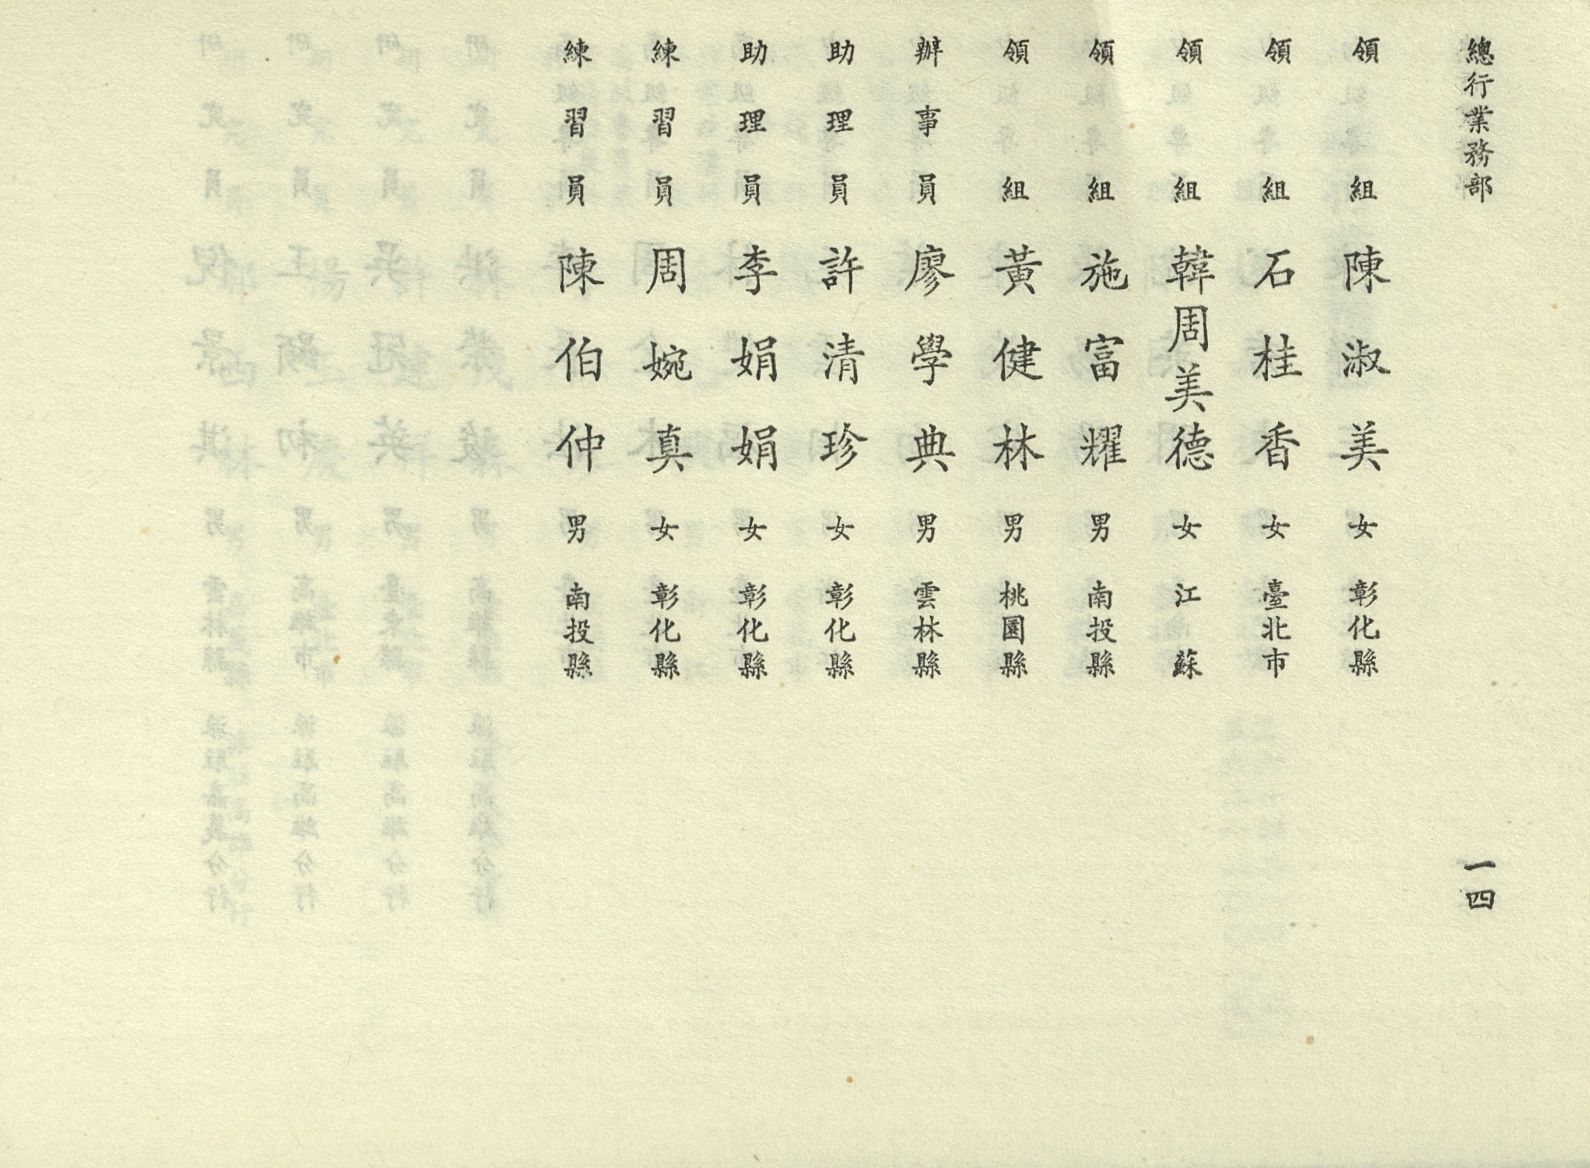 總行業務部 一四
領組 陳淑美 女 彰化縣
領組 石桂香 女 臺北市
領組 韓周美德 女 江蘇
領組 施富耀 男 南投縣
領組 黃健林 男 桃園縣
辦事員 廖學典 男 雲林縣
助理員 許清珍 女 彰化縣
助理員 李娟娟 女 彰化縣
練習員 周婉真 女 彰化縣
練習員 陳伯仲 男 南投縣